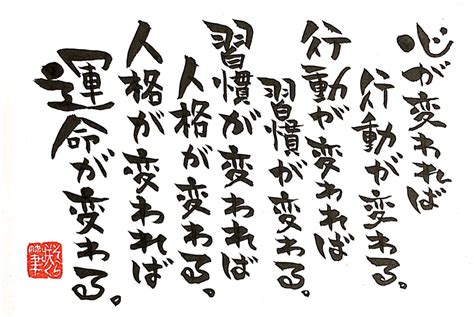 心が変われば
行動が変わる。
行動が変われば
習慣が変わる。
習慣が変われば
人格が変わる。
人格が変われば
運命が変わる。